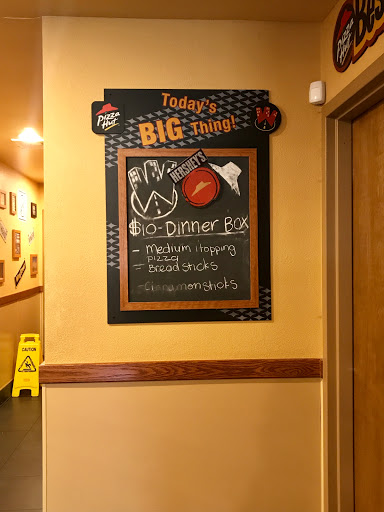 Today's
BIG Thing!
Pizza
Hut
HERSHEY'S
$10-Dinner BOX
- Medium 1 topping
pizza
- Bread sticks
- Cinnamon sticks
Pizza
Hut
CAUTION